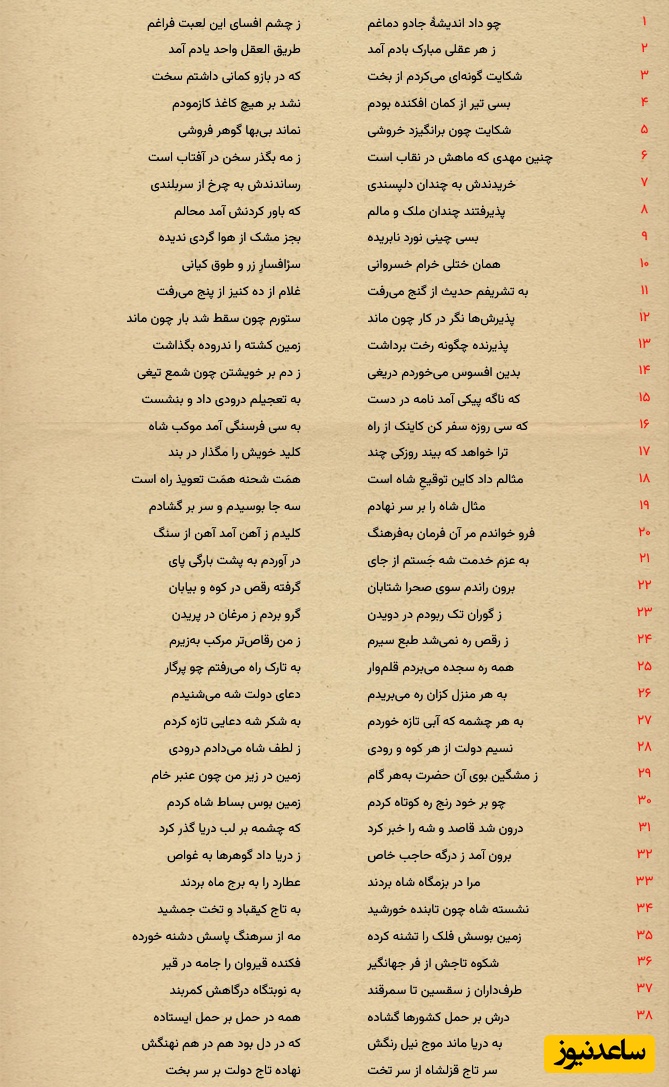 ۱ چو داد اندیشهٔ جادو دماغم ز چشم افسای این لعبت فراغم
۲ ز هر عقلی مبارک بادم آمد طریق العقل واحد یادم آمد
۳ شکایت گونه‌ای می‌کردم از بخت که در بازو کمانی داشتم سخت
۴ بسی تیر از کمان افکنده بودم نشد بر هیچ کاغذ کازمودم
۵ شکایت چون برانگیزد خروشی نماند بی‌بها گوهر فروشی
۶ چنین مهدی که ماهش در نقاب است ز مه بگذر سخن در آفتاب است
۷ خریدندش به چندان دلپسندی رساندندش به چرخ از سربلندی
۸ پذیرفتند چندان ملک و مالم که باور کردنش آمد محالم
۹ بسی چینی نورد نابریده بجز مشک از هوا گردی ندیده
۱۰ همان ختلی خرام خسروانی سرافسارِ زر و طوق کیانی
۱۱ به تشریفم حدیث از گنج می‌رفت غلام از ده کنیز از پنج می‌رفت
۱۲ پذیرش‌ها نگر در کار چون ماند ستورم چون سقط شد بار چون ماند
۱۳ پذیرنده چگونه رخت برداشت زمین کشته را ندروده بگذاشت
۱۴ بدین افسوس می‌خوردم دریغی ز دم بر خویشتن چون شمع تیغی
۱۵ که ناگه پیکی آمد نامه در دست به تعجیلم درودی داد و بنشست
۱۶ که سی روزه سفر کن کاینک از راه به سی فرسنگی آمد موکب شاه
۱۷ ترا خواهد که بیند روزکی چند کلید خویش را مگذار در بند
۱۸ مثالم داد کاین توقیعِ شاه است همَت شحنه همَت تعویذ راه است
۱۹ مثال شاه را بر سر نهادم سه جا بوسیدم و سر بر گشادم
۲۰ فرو خواندم مر آن فرمان به‌فرهنگ کلیدم ز آهن آمد آهن از سنگ
۲۱ به عزم خدمت شه جَستم از جای در آوردم به پشت بارگی پای
۲۲ برون راندم سوی صحرا شتابان گرفته رقص در کوه و بیابان
۲۳ ز گوران تک ربودم در دویدن گرو بردم ز مرغان در پریدن
۲۴ ز رقص ره نمی‌شد طبع سیرم ز من رقاص‌تر مرکب به‌زیرم
۲۵ همه ره سجده می‌بردم قلم‌وار به تارک راه می‌رفتم چو پرگار
۲۶ به هر منزل کزان ره می‌بریدم دعای دولت شه می‌شنیدم
۲۷ به هر چشمه که آبی تازه خوردم به شکر شه دعایی تازه کردم
۲۸ نسیم دولت از هر کوه و رودی ز لطف شاه می‌دادم درودی
۲۹ ز مشگین بوی آن حضرت به‌هر گام زمین در زیر من چون عنبر خام
۳۰ چو بر خود رنج ره کوتاه کردم زمین بوس بساط شاه کردم
۳۱ درون شد قاصد و شه را خبر کرد که چشمه بر لب دریا گذر کرد
۳۲ برون آمد ز درگه حاجب خاص ز دریا داد گوهرها به غواص
۳۳ مرا در بزمگاه شاه بردند عطارد را به برج ماه بردند
۳۴ نشسته شاه چون تابنده خورشید به تاج کیقباد و تخت جمشید
۳۵ زمین بوسش فلک را تشنه کرده مه از سرهنگ پاسش دشنه خورده
۳۶ شکوه تاجش از فر جهانگیر فکنده قیروان را جامه در قیر
۳۷ طرف‌داران ز سقسین تا سمرقند به نوبتگاه درگاهش کمربند
۳۸ درش بر حمل کشورها گشاده همه در حمل بر حمل ایستاده
به دریا ماند موج نیل رنگش که در دل بود هم در هم نهنگش
سر تاج قزلشاه از سر تخت نهاده تاج دولت بر سر بخت
ساعدنیوز